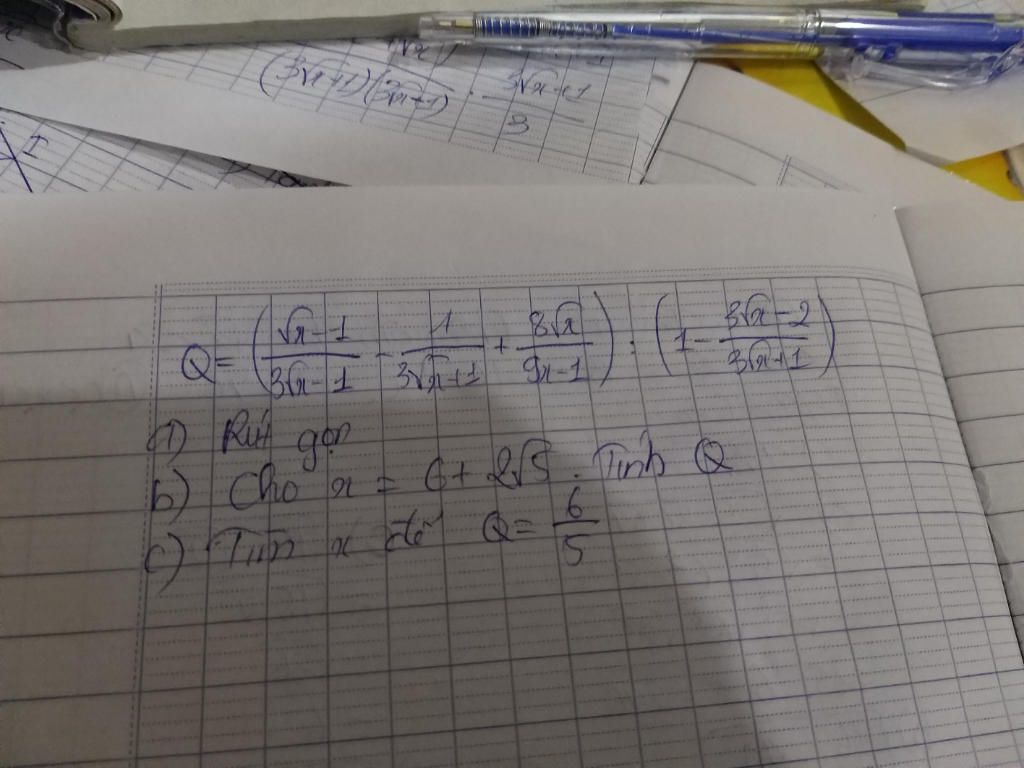 (3√x+1)(3√x-1) · 3√x+1 / 3
Q = ( (√x - 1)/(3√x - 1) - 1/(3√x+1) + 8√x/(9x-1) ) : ( 1 - (3√x - 2)/(3√x+1) )
a) Rút gọn
b) Cho x = 6 + 2√5. Tính Q
c) Tìm x để Q = 6/5